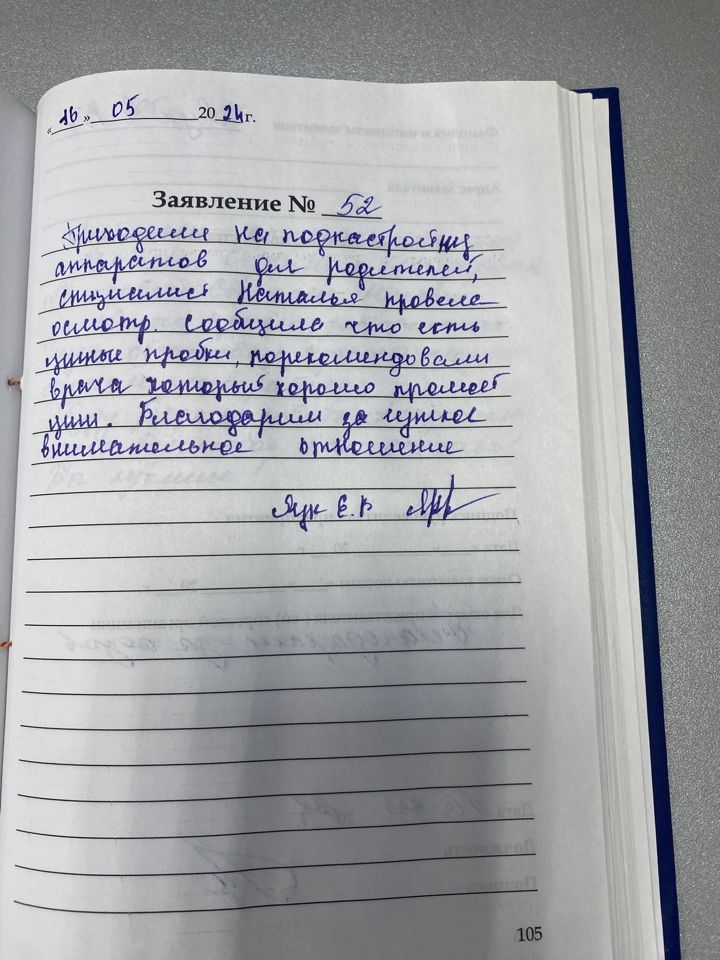 «16» 05 2024 г.
Заявление № 52
Приходили на поднастройку
аппаратов для родителей,
специалист Наталья провела
осмотр. Сообщила что есть
ушные пробки, порекомендовали
врача который хорошо промоет
уши. Благодарим за чуткое
внимательное отношение
Яук Е.В
105